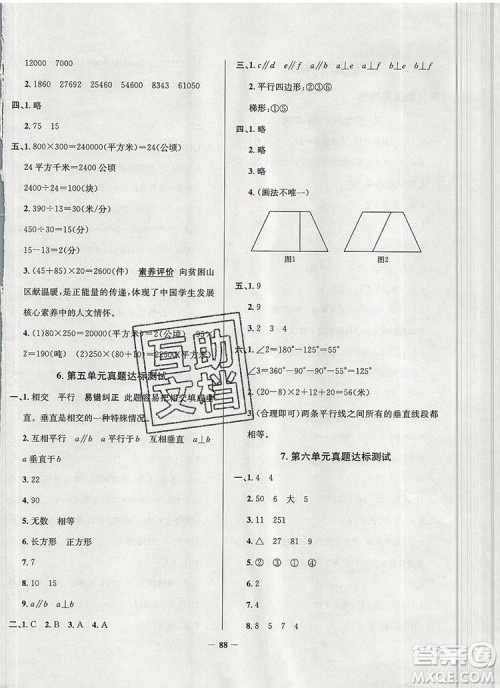 12000　7000
2. 1860　27692　25460　54600　8343　61050
四、1. 略
2. 75　15
五、1. 800×300=240000(平方米)=24(公顷)
24平方千米=2400公顷
2400÷24=100(块)
2. 390÷13=30(分)　390÷26=15(分)
30-15=15(分)
15-13=2(分)
3. (45+85)×20=2600(件)　素养评价　向贫困山
区献温暖，是正能量的传递，体现了中国学生发展
核心素养中的人文情怀。
4. (1)80×250=20000(平方米)=2(公顷)　95×
2=190(吨)　(2)80×2×250=40000(平方米)
6. 第五单元真题达标测试
一、1. 相交　平行　易错纠正　此题容易把相交填成垂
直。垂直是相交的一种特殊情况。
2. 互相平行　a平行于b　a∥b　互相垂直
a垂直于b　a⊥b
3. 9
4. a∥b　a∥b
5. 无数　相等
6. 长方形　正方形
7. 平行
8. 10　15
9. a∥b　a⊥b
二、1. C　2. B　3. A　4. A
三、1. c∥d　e∥f　a⊥b　a⊥e　b⊥f　a⊥f
2. 平行四边形：②③⑥
梯形：①⑤
四、1. 略
2. 略
3. 略
4. (画法不唯一)
图1　图2
五、1. 9
2. 2　3　4
3. 7
六、1. ∠2=180°-125°=55°
∠3=360°-90°-90°-55°=125°
2. (20-8)×2+16×2=56(米)
3. (合理即可)两条平行线之间所有的垂直线段都
相等。
7. 第六单元真题达标测试
一、1. 4　4
2. 50　6　大　5
3. 11　251
4. △　27　81　9
5. ②　①　③　④
6. 2
7. 9
8. 8571　4　6　9　5　7
· 88 ·
互助
文档
答案圈
MXQE.COM